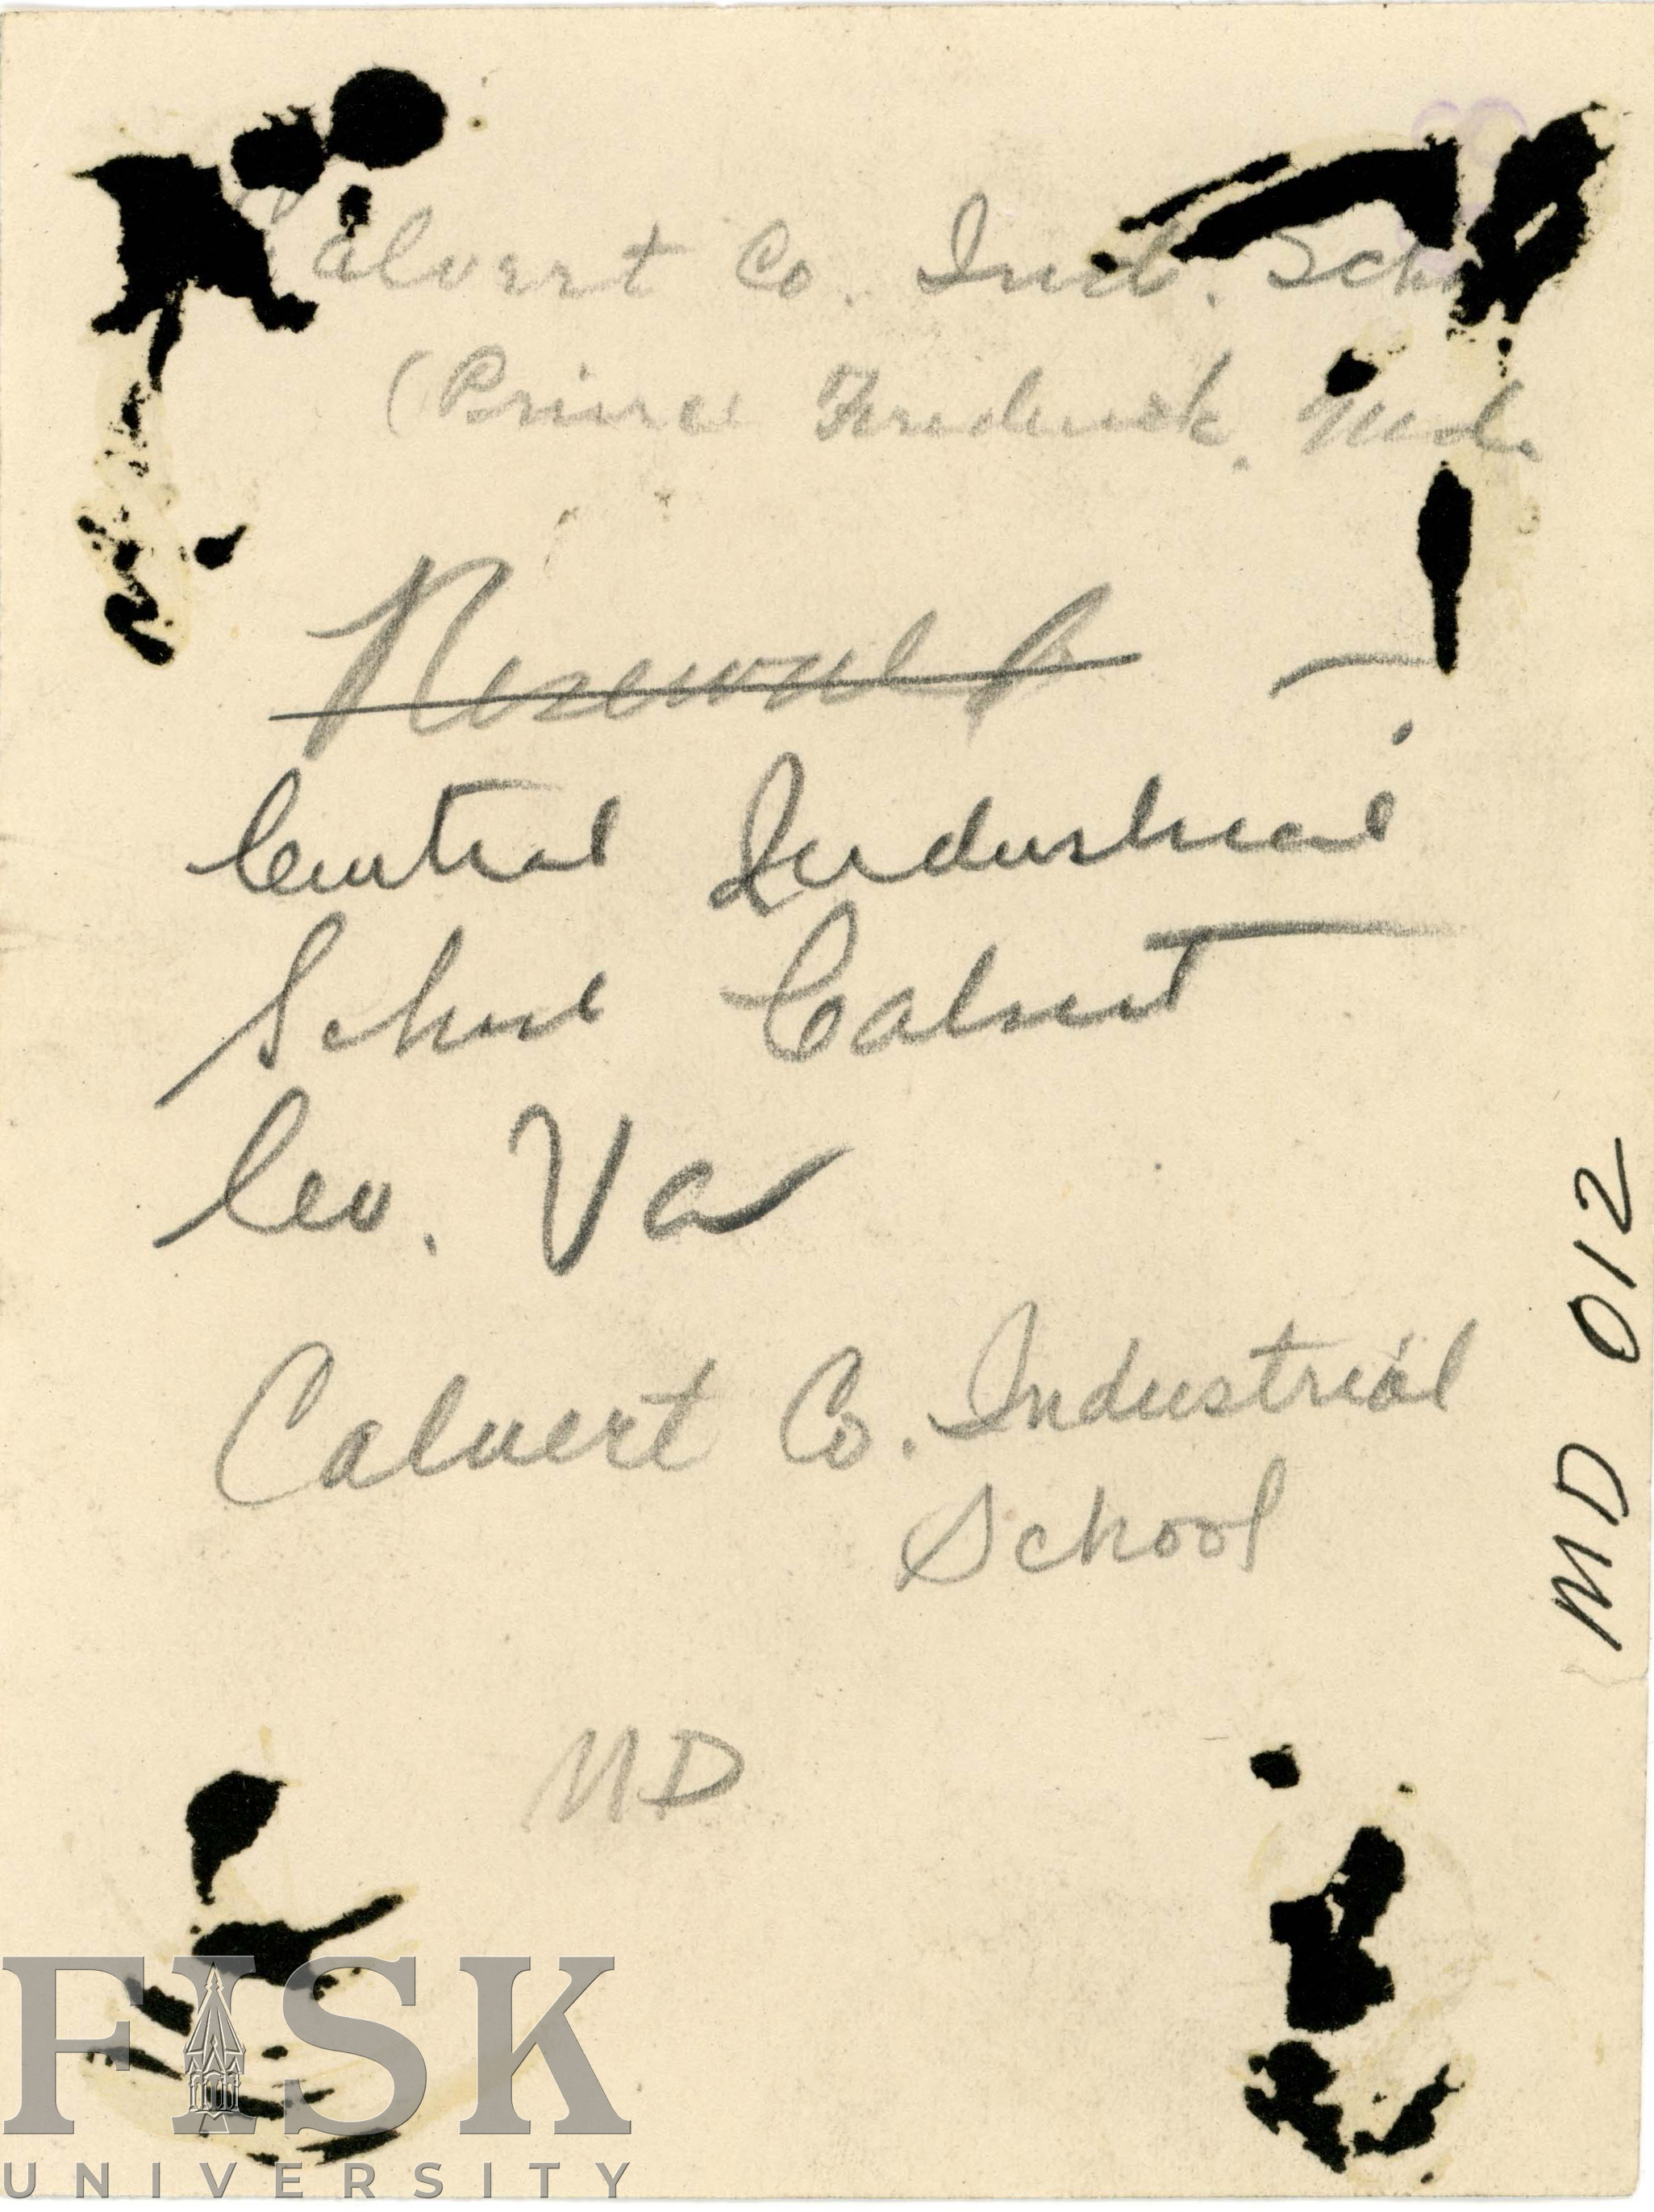 Calvert Co. Ind. Scho
(Prince Frederick, Md.
Central Industrial
School Calvert
Co. Va
Calvert Co. Industrial
School
MD
MD 012
FISK
UNIVERSITY